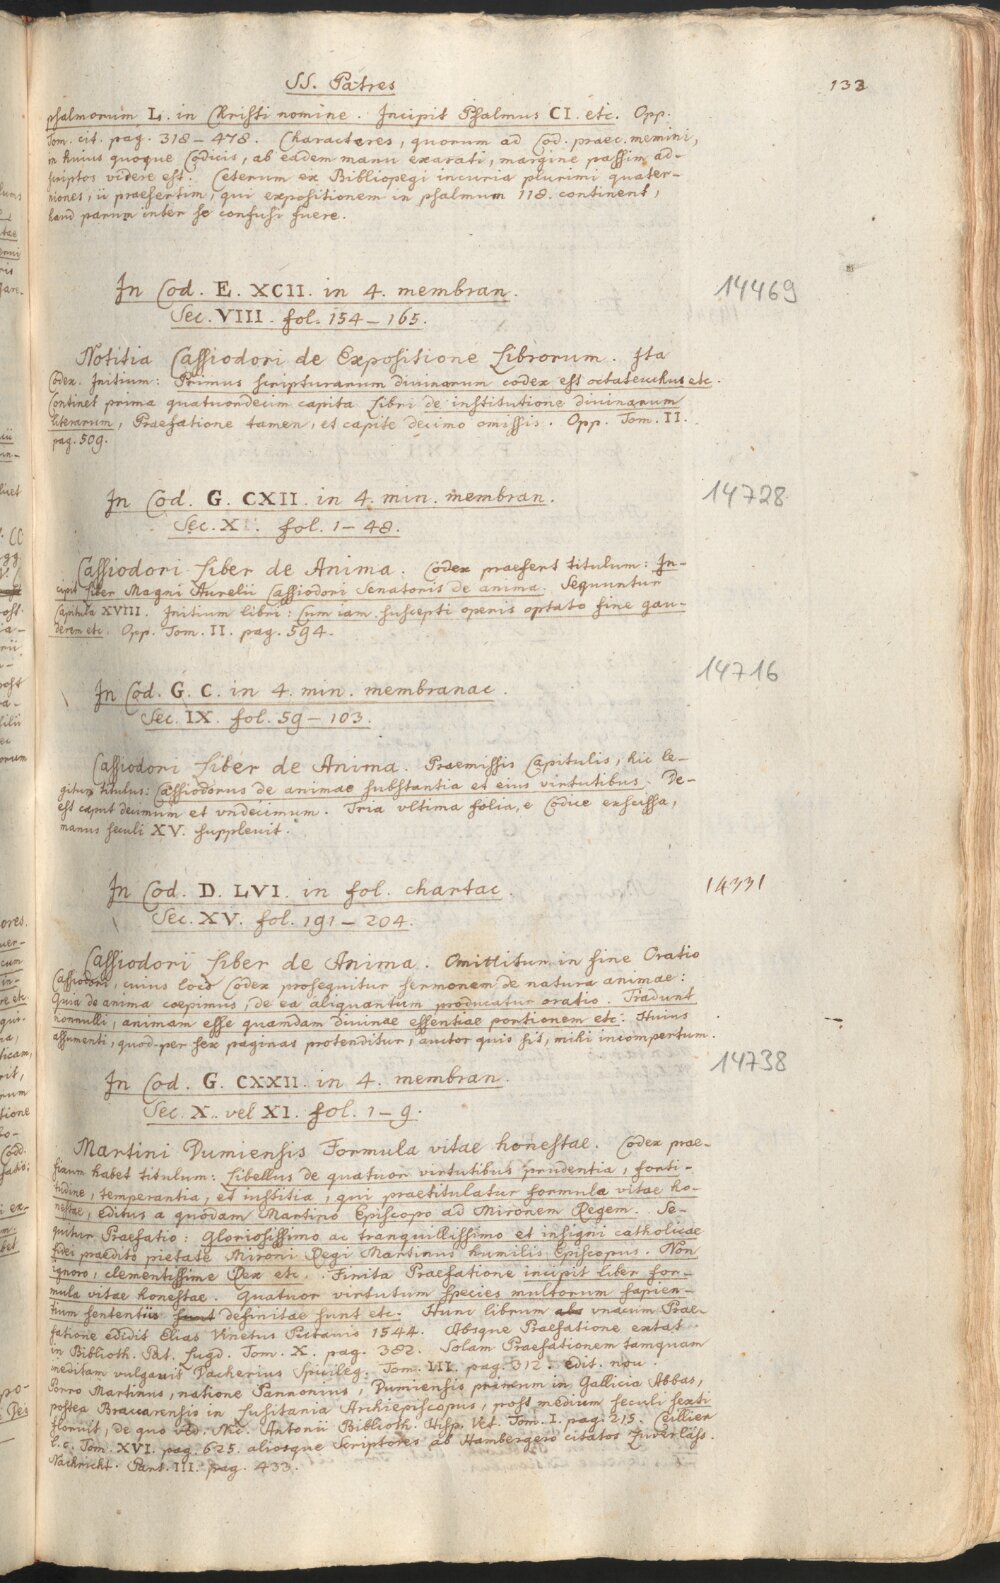 SS. Patres
133
psalmorum L. in Christi nomine. Incipit Psalmus CI. etc. Opp.
Tom. cit. pag. 318-478. Characteres, quorum ad Cod. praec. memini,
in huius quoque Codicis, ab eadem manu exarati, margine passim ad-
scriptos videre est. Ceterum ex Bibliopegi incuria plurimi quater-
niones, ii praesertim, qui expositionem in psalmum 118. continent,
haud parum inter se confusi fuere.
In Cod. E. XCII. in 4. membran.
14469
Sec. VIII. fol. 154-165.
Notitia Cassiodori de Expositione Librorum. Ita
Codex. Initium: Primus scripturarum diuinarum codex est octateuchus etc.
Continet prima quatuordecim capita Libri de institutione diuinarum
literarum, Praefatione tamen, et capite decimo omissis. Opp. Tom. II.
pag. 509.
In Cod. G. CXII. in 4. min. membran.
14728
Sec. X. fol. 1-48.
Cassiodori Liber de Anima. Codex praefert titulum: In-
cipit Liber Magni Aurelii Cassiodori Senatoris de anima. Sequuntur
Capitula XVIII. Initium libri: Cum iam suscepti operis optato fine gau-
derem etc. Opp. Tom. II. pag. 594.
14716
In Cod. G. C. in 4. min. membranac.
Sec. IX. fol. 59-103.
Cassiodori Liber de Anima. Praemissis Capitulis, hic le-
gitur titulus: Cassiodorus de animae substantia et eius virtutibus. De-
est caput decimum et vndecimum. Tria vltima folia, e Codice exscissa,
manus seculi XV. suppleuit.
In Cod. D. LVI. in fol. chartac.
14331
Sec. XV. fol. 191-204.
Cassiodori Liber de Anima. Omittitur in fine Oratio
Cassiodori, cuius loco Codex prosequitur sermonem de natura animae:
Quia de anima coepimus, de ea aliquantum producatur oratio. Tradunt
nonnulli, animam esse quamdam diuinae essentiae portionem etc. Huius
assumenti, quod per sex paginas protenditur, auctor quis sit, mihi incompertum.
14738
In Cod. G. CXXII. in 4. membran.
Sec. X. vel XI. fol. 1-9.
Martini Dumiensis Formula vitae honestae. Codex prae-
fixum habet titulum: Libellus de quatuor virtutibus prudentia, forti-
tudine, temperantia, et iustitia, qui praetitulatur formula vitae ho-
nestae, editus a quodam Martino Episcopo ad Mironem Regem. Se-
quitur Praefatio: Gloriosissimo ac tranquillissimo et insigni catholicae
fidei praedito pietate Mironi Regi Martinus humilis Episcopus. Non
ignoro, clementissime Rex etc. Finita Praefatione incipit liber for-
mula vitae honestae. Quatuor virtutum species multorum sapien-
tium sententiis sunt definitae sunt etc. Hunc librum abs vnacum Prae-
fatione edidit Elias Vinetus Pictauis 1544. Absque Praefatione extat
in Biblioth. Pat. Lugd. Tom. X. pag. 382. Solam Praefationem tamquam
ineditam vulgauit Dacherius Spicileg. Tom. III. pag. 312. edit. nou.
Porro Martinus, natione Pannonius, Dumiensis primum in Gallicia Abbas,
postea Bracarensis in Lusitania Archiepiscopus, post medium seculi sexti
floruit, de quo vid. Nic. Antonii Biblioth. Hisp. Vet. Tom. I. pag. 215. Ceillier
l. c. Tom. XVI. pag. 625. aliosque Scriptores ab Hambergero citatos Zuverläss.
Nachricht. Part. III. pag. 433.